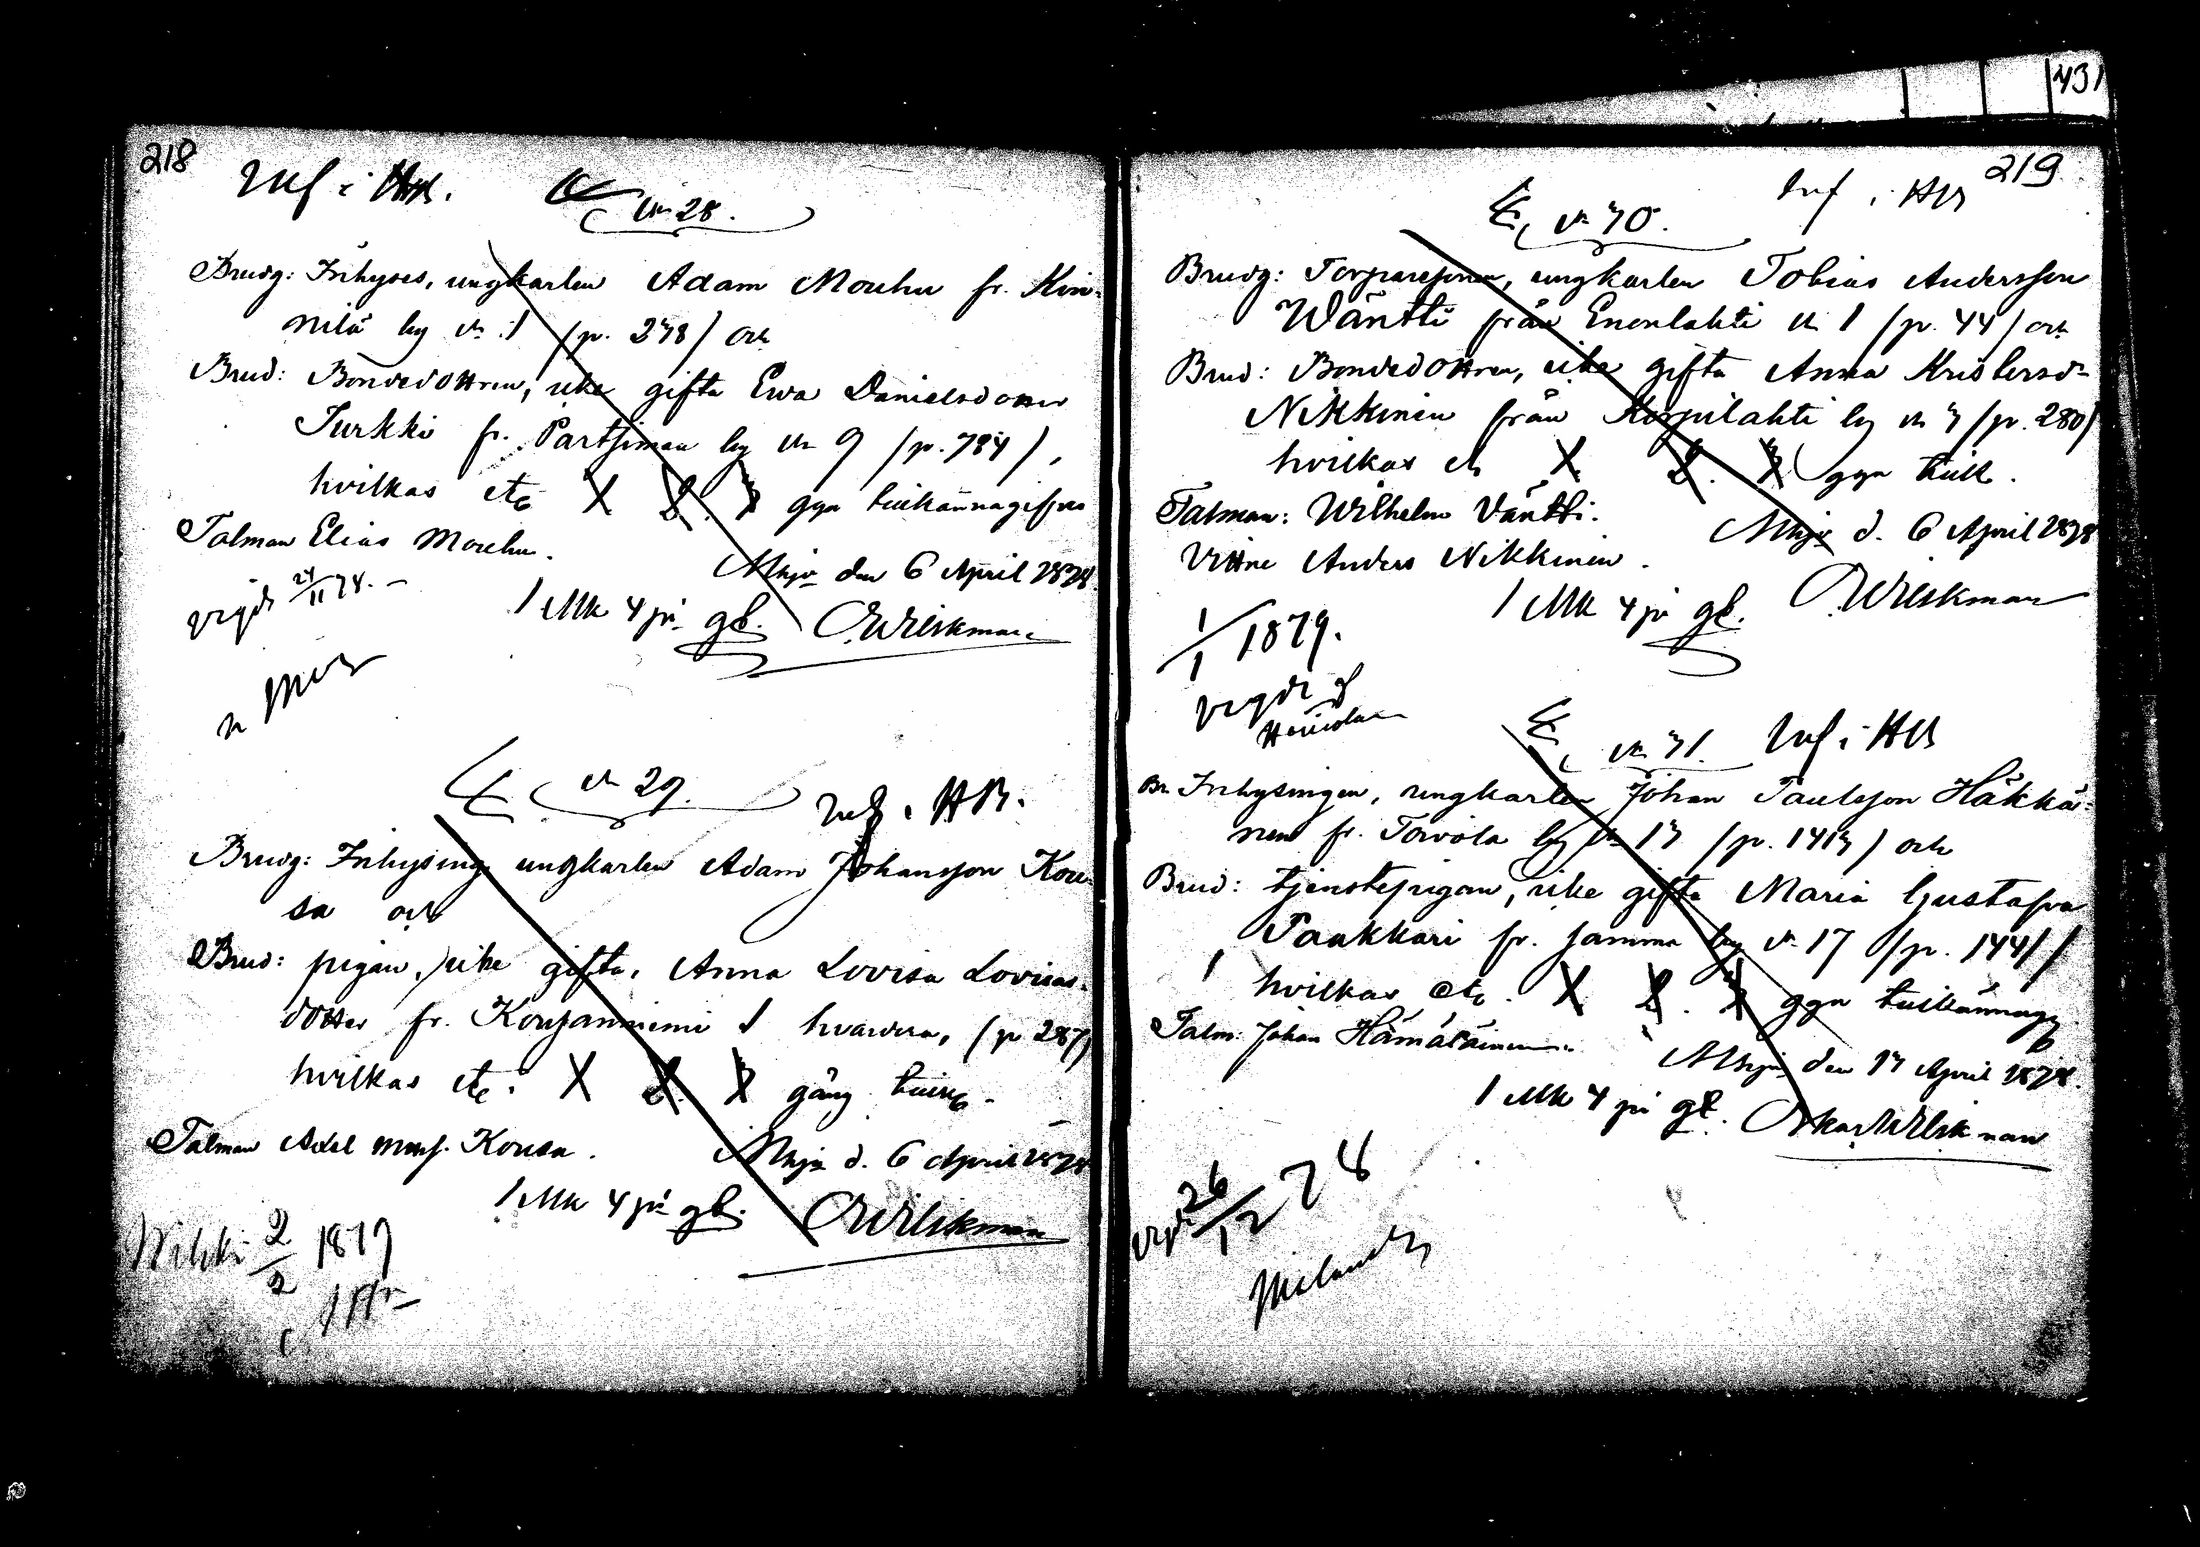 218
Inf i HB.
N 28.
Brudg: Inhyses, ungkarlen Adam Mouhu fr. Kin-
nilä by N 1 (p. 278) och
Brud: Bondedottren, icke gifta Ewa Danielsdotter
Turkki fr. Partsimaa by N 9 (p. 784),
hvilkas etc X 2. 3 ggn
Talman Elias Mouhu.
Mhjr den 6 April 1878
vigde 24/11 78.
1 Mk 4 pi gl. O Wilskman
N 29.
Inf i HB.
Brudg: Inhysing ungkarlen Adam Johansson Kou-
sa och
Brud: pigan, icke gifta, Anna Lovisa Lovisas-
dotter fr. Konjanniemi 1 hvardera, (p 287)
hvilkas etc. X 2. 3 gång
Talman Axel Kousa.
Mhjr d. 6 April 1878
1 Mk 4 pi gl. O Wilskman
2/2 1879
431
219
Inf i HB
N 70.
Brudg: Torparesonen, ungkarlen Tobias Andersson
Wäntti från Enonlahti N 1 (p. 44) och
Brud: Bondedottren, icke gifta Anna Kristersd-
Nikkinen från Korpilahti by N 7 (p. 280)
hvilkas etc X 2. 3 ggn
Talman: Wilhelm Väntti.
Mhjr d. 6 April 1878
Vittne Anders Nikkinen.
1 Mk 4 pi gl. O Wilskman
1/1 1879.
vigde af
N 71. Inf i HB
Br. Inhysingen, ungkarlen Johan Paulsson Häkkä-
nen fr. Toivola by N 17 (p. 1417) och
Brud: tjenstepigan, icke gifta Maria Gustafva
Paukkari fr. samma by N 17 (p. 1441)
hvilkas etc. X 2. 3 ggn
Talm: Johan Hämäläinen
Mhjr den 17 April 1878.
1 Mk 4 pi gl. Oskar Wilskman
vigde 26/12 78